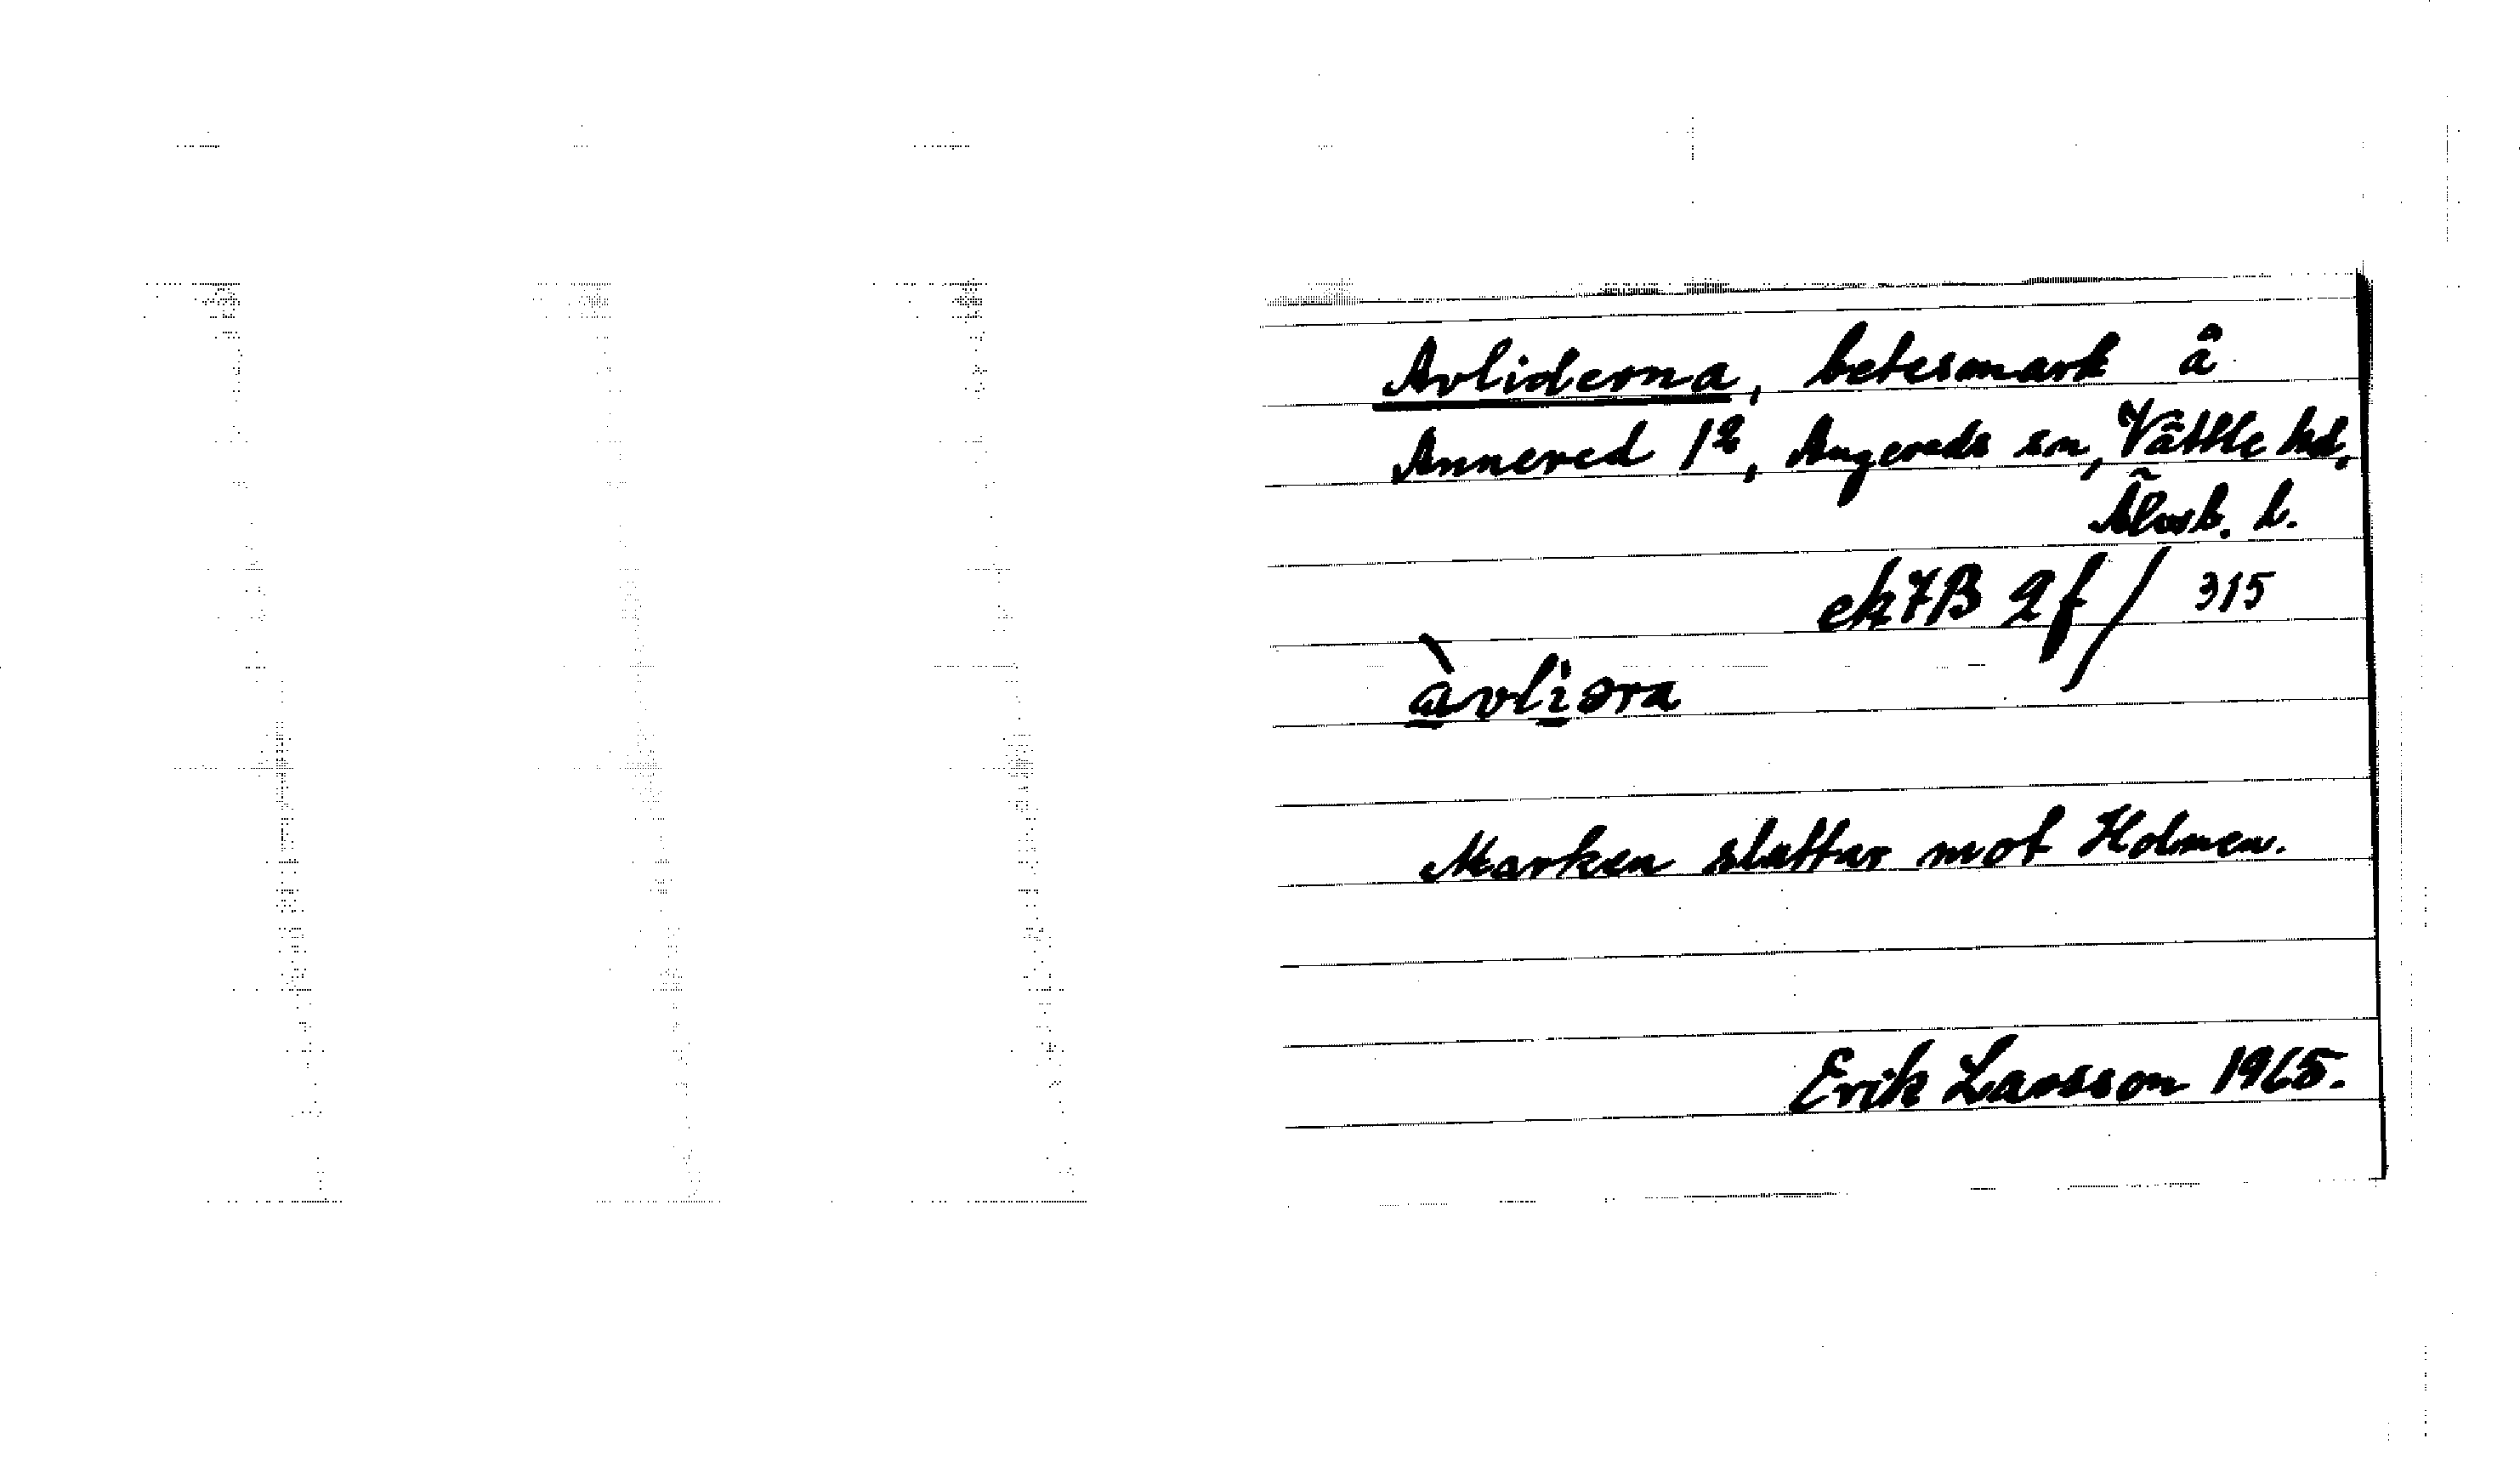 Avliderna, betesmark å
Annered 1², Angereds sn, Vättle hd,
Älvsb. l.
ek 7B 2f / 315
àvliəra
Marken sluttar mot Holmen.
Erik Larsson 1965.